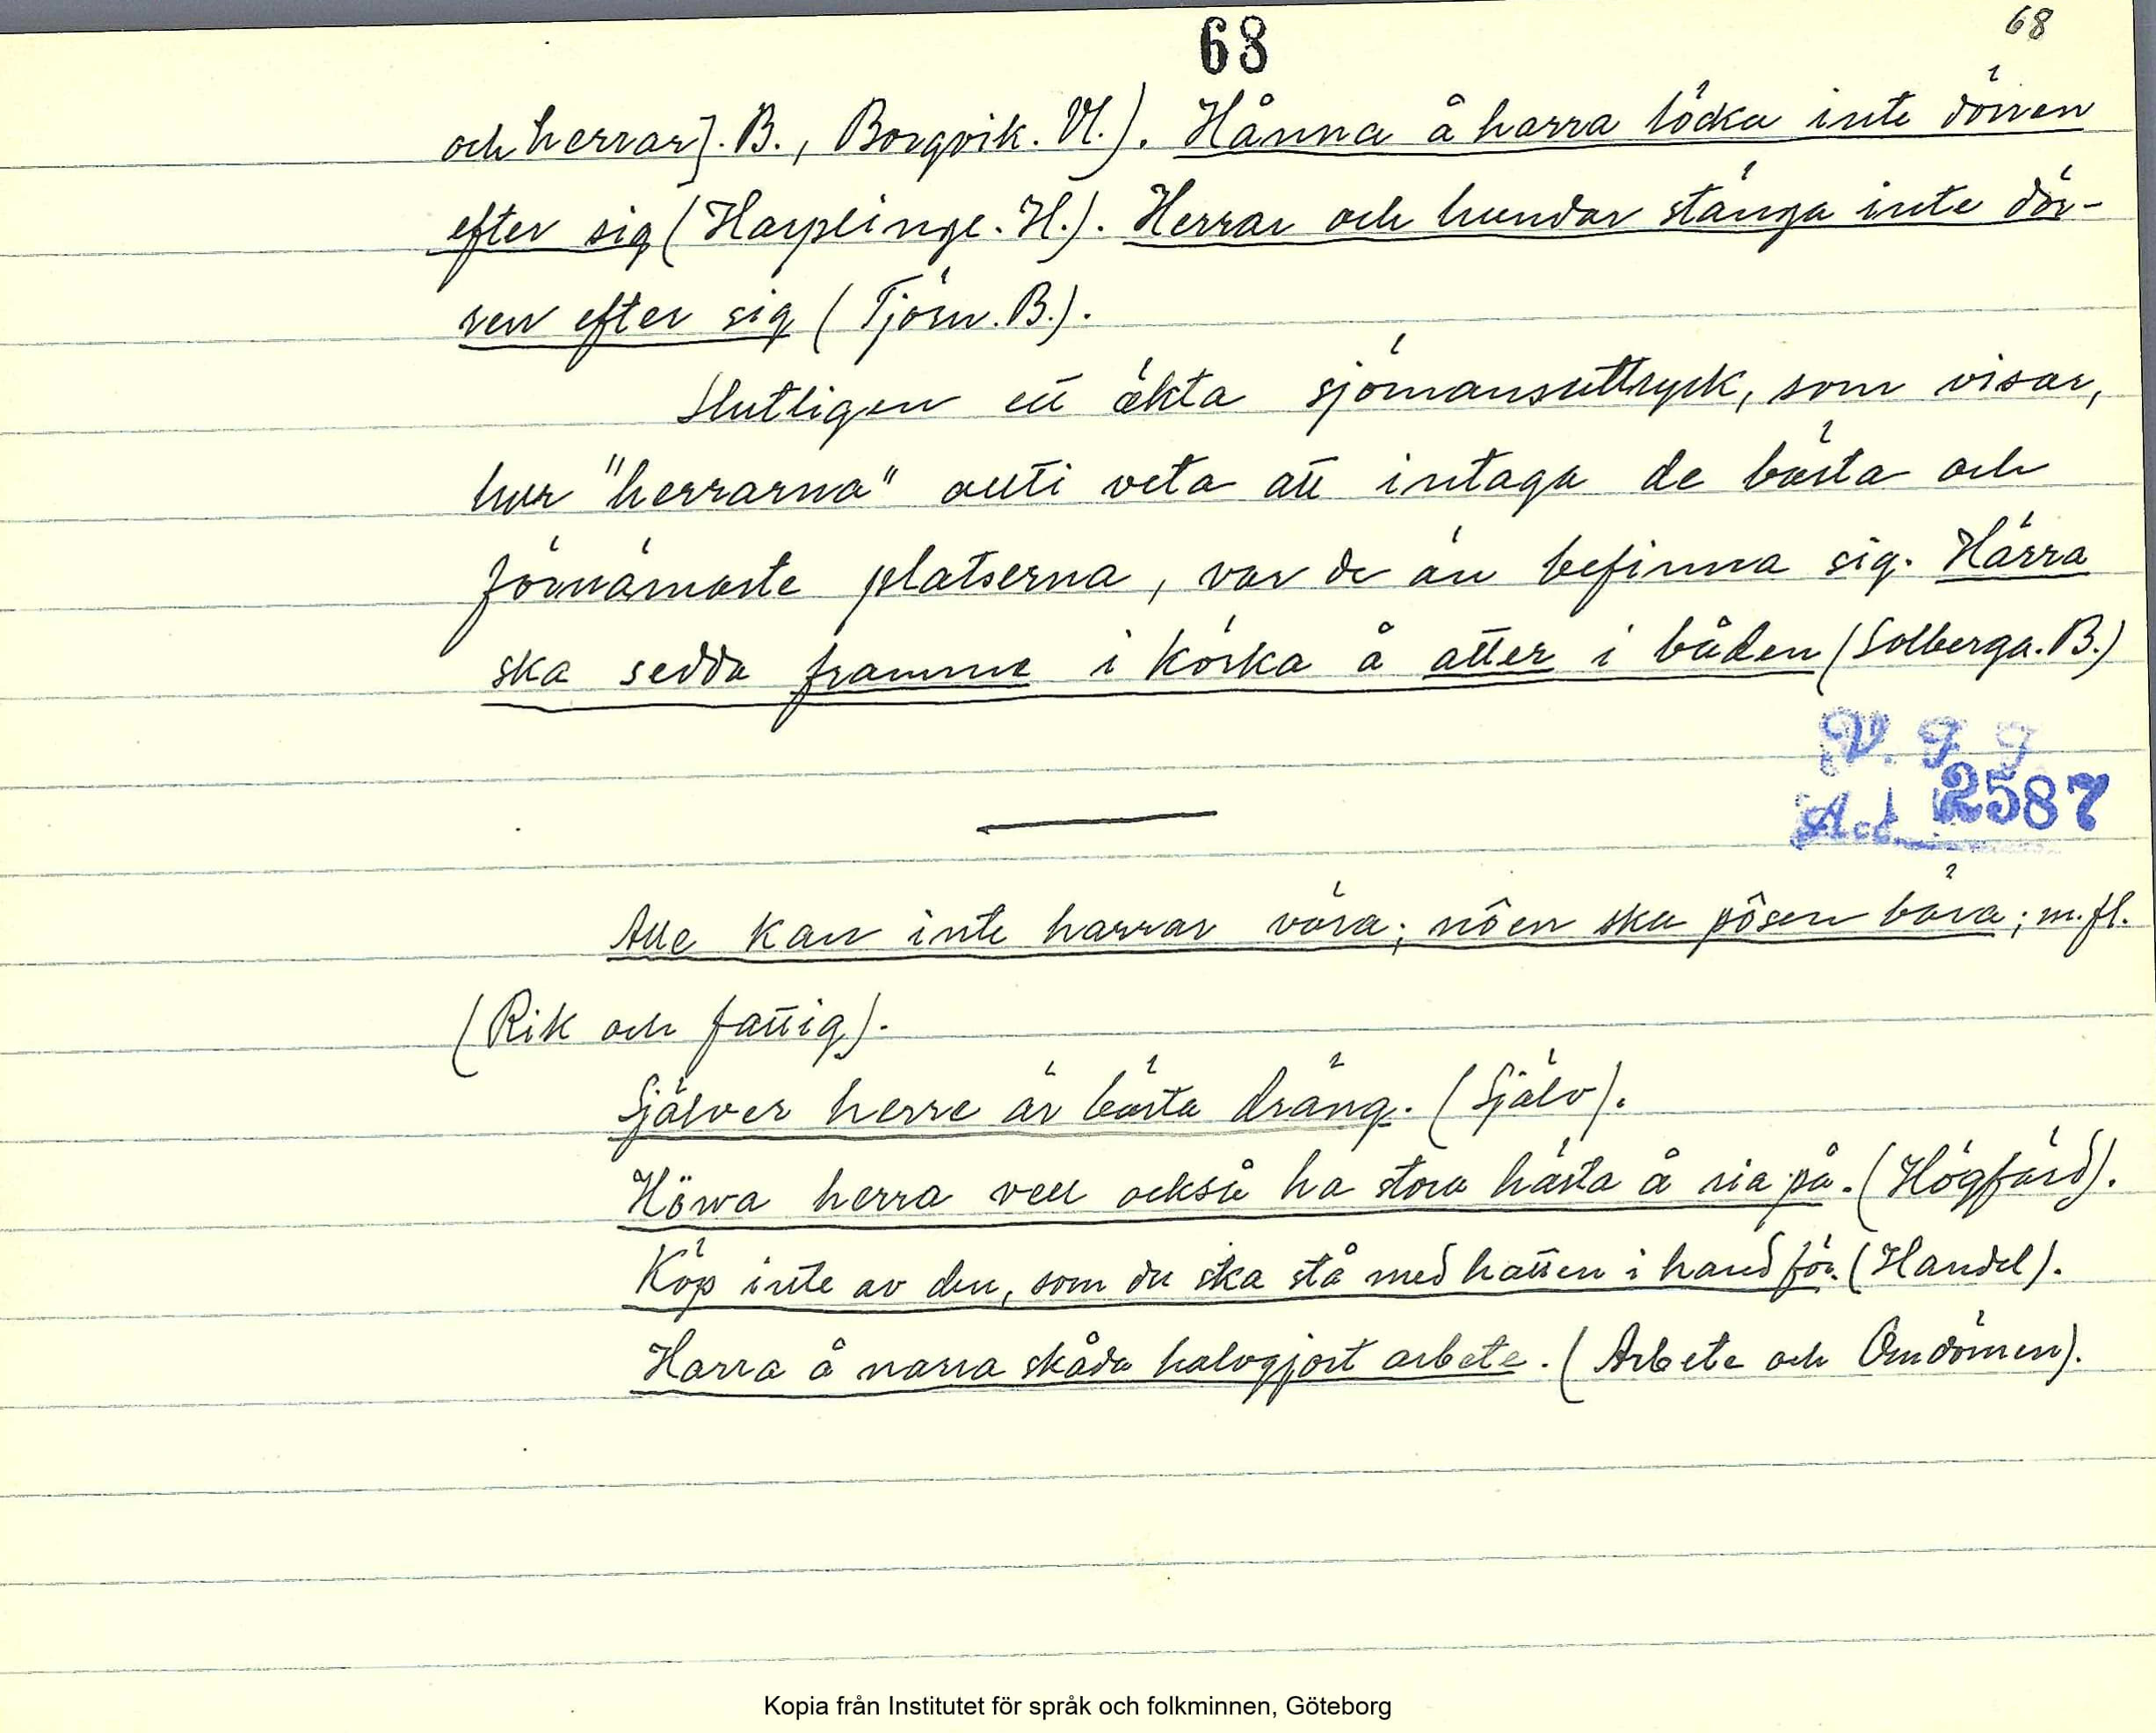 68
68
och herrar]. B., Borgvik. Vl.). Hånna å harra löcka inte dören
efter sig (Harplinge. H.). Herrar och hundar stänga inte dör-
ren efter sig (Tjörn. B.).
Slutligen ett äkta sjömansuttryck, som visar,
hur "herrarna" allti veta att intaga de bästa och
förnämaste platserna, var de än befinna sig. Härra
ska sedda framme i körka å atter i båden (Solberga. B.)
V. G. J
Acc. 2587
Alle kan inte harrar våra; nôen ska pôsen bära; m. fl.
(Rik och fattig).
Själver herre är bästa dräng. (Själv).
Höwa herra vell också ha stora hästa å ria på. (Högfärd).
Köp inte av den, som du ska stå med hatten i hand för. (Handel).
Harra å narra skåda halvgjort arbete. (Arbete och Omdömen).
Kopia från Institutet för språk och folkminnen, Göteborg